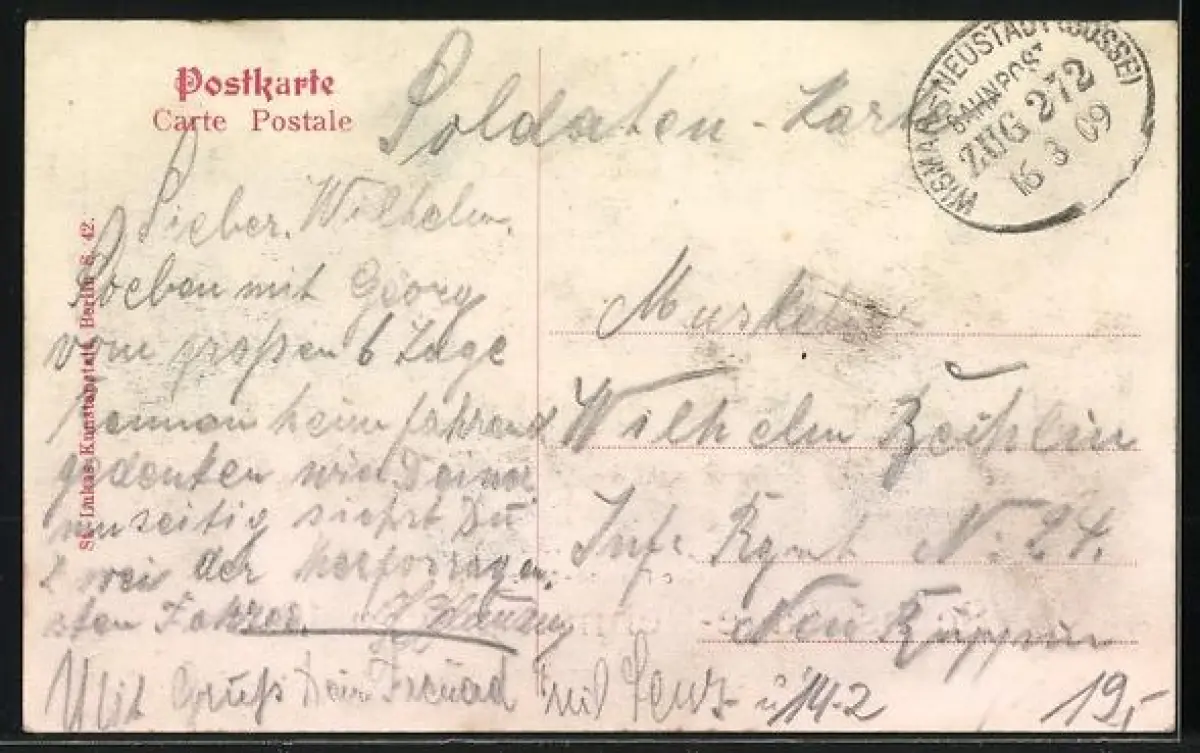 Postkarte
Carte Postale
Soldaten-Karte
WISMAR-NEUSTADT (DOSSE)
BAHNPOST
ZUG 272
16 3 09
St. Lukas-Kunstanstalt, Berlin S. 42.
Lieber Wilhelm.
Soeben mit Georg
vom großen 6 Tage
Rennen heim fahrend
gedenken wir Deiner
umseitig siehst Du
zwei der herforragen
sten Fahrer.
Mit Gruß Dein Freund Emil
Musketier
Wilhelm
Inf. Rgmt N. 24.
Neu Ruppin
19,-